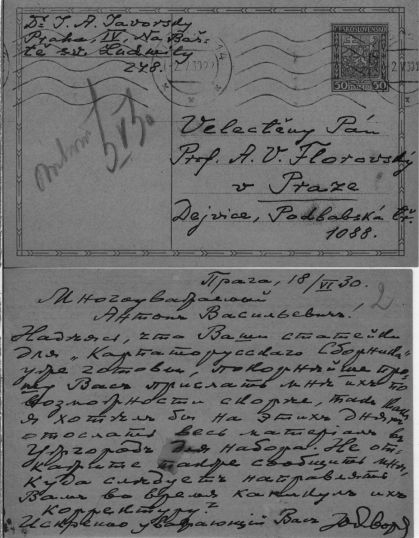 Dr. J. A. Javorsky
Praha, IV. Na Baš-
tě sv. Ludmily
278.
ČESKOSLOVENSKO
50 50
Velectěny Pán
Prof. A. V. Florovský
v Praze
Dejvice, Podbabská tř.
1088.
Прага, 18/VI 30.
2
Многоуважаемый
Антонъ Васильевичъ!
Надѣясь, что Ваши статейки
для „Карпаторусскаго Сборника"
уже готовы, покорнѣйше про-
шу Васъ прислать мнѣ ихъ по
возможности скорѣе, такъ какъ
я хотѣлъ бы на этихъ дняхъ
отослать весь матеріалъ въ
Ужгородъ для набора. Не от-
кажите также сообщить мнѣ,
куда слѣдуетъ направлять
Вамъ во время каникулъ ихъ
корректуру?
Искренно уважающій Васъ